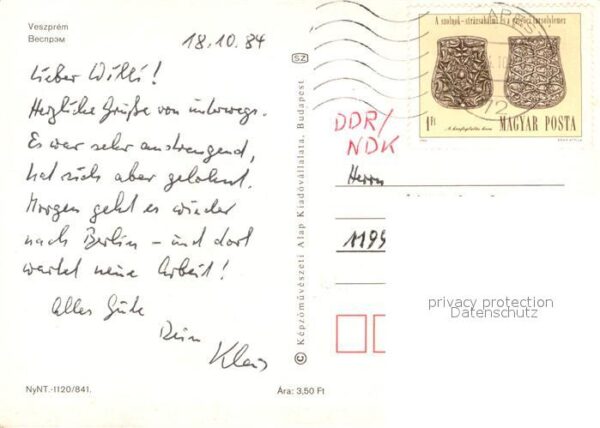 Veszprém
Веспрэм
18.10.84
Lieber Willi!
Herzliche Grüße von unterwegs.
Es war sehr anstrengend,
hat sich aber gelohnt.
Morgen geht es wieder
nach Berlin – und dort
wartet neue Arbeit!
Alles Gute
Dein
Klaus
NyNT.-1120/841.
Ára: 3,50 Ft
© Képzőművészeti Alap Kiadóvállalata, Budapest
SZ
A szolnok-strázsahalmi és a galgóci tarsolylemez
1 Ft
A honfoglalás kora
MAGYAR POSTA
12
DDR/
NDK
Herrn
1195
privacy protection
Datenschutz